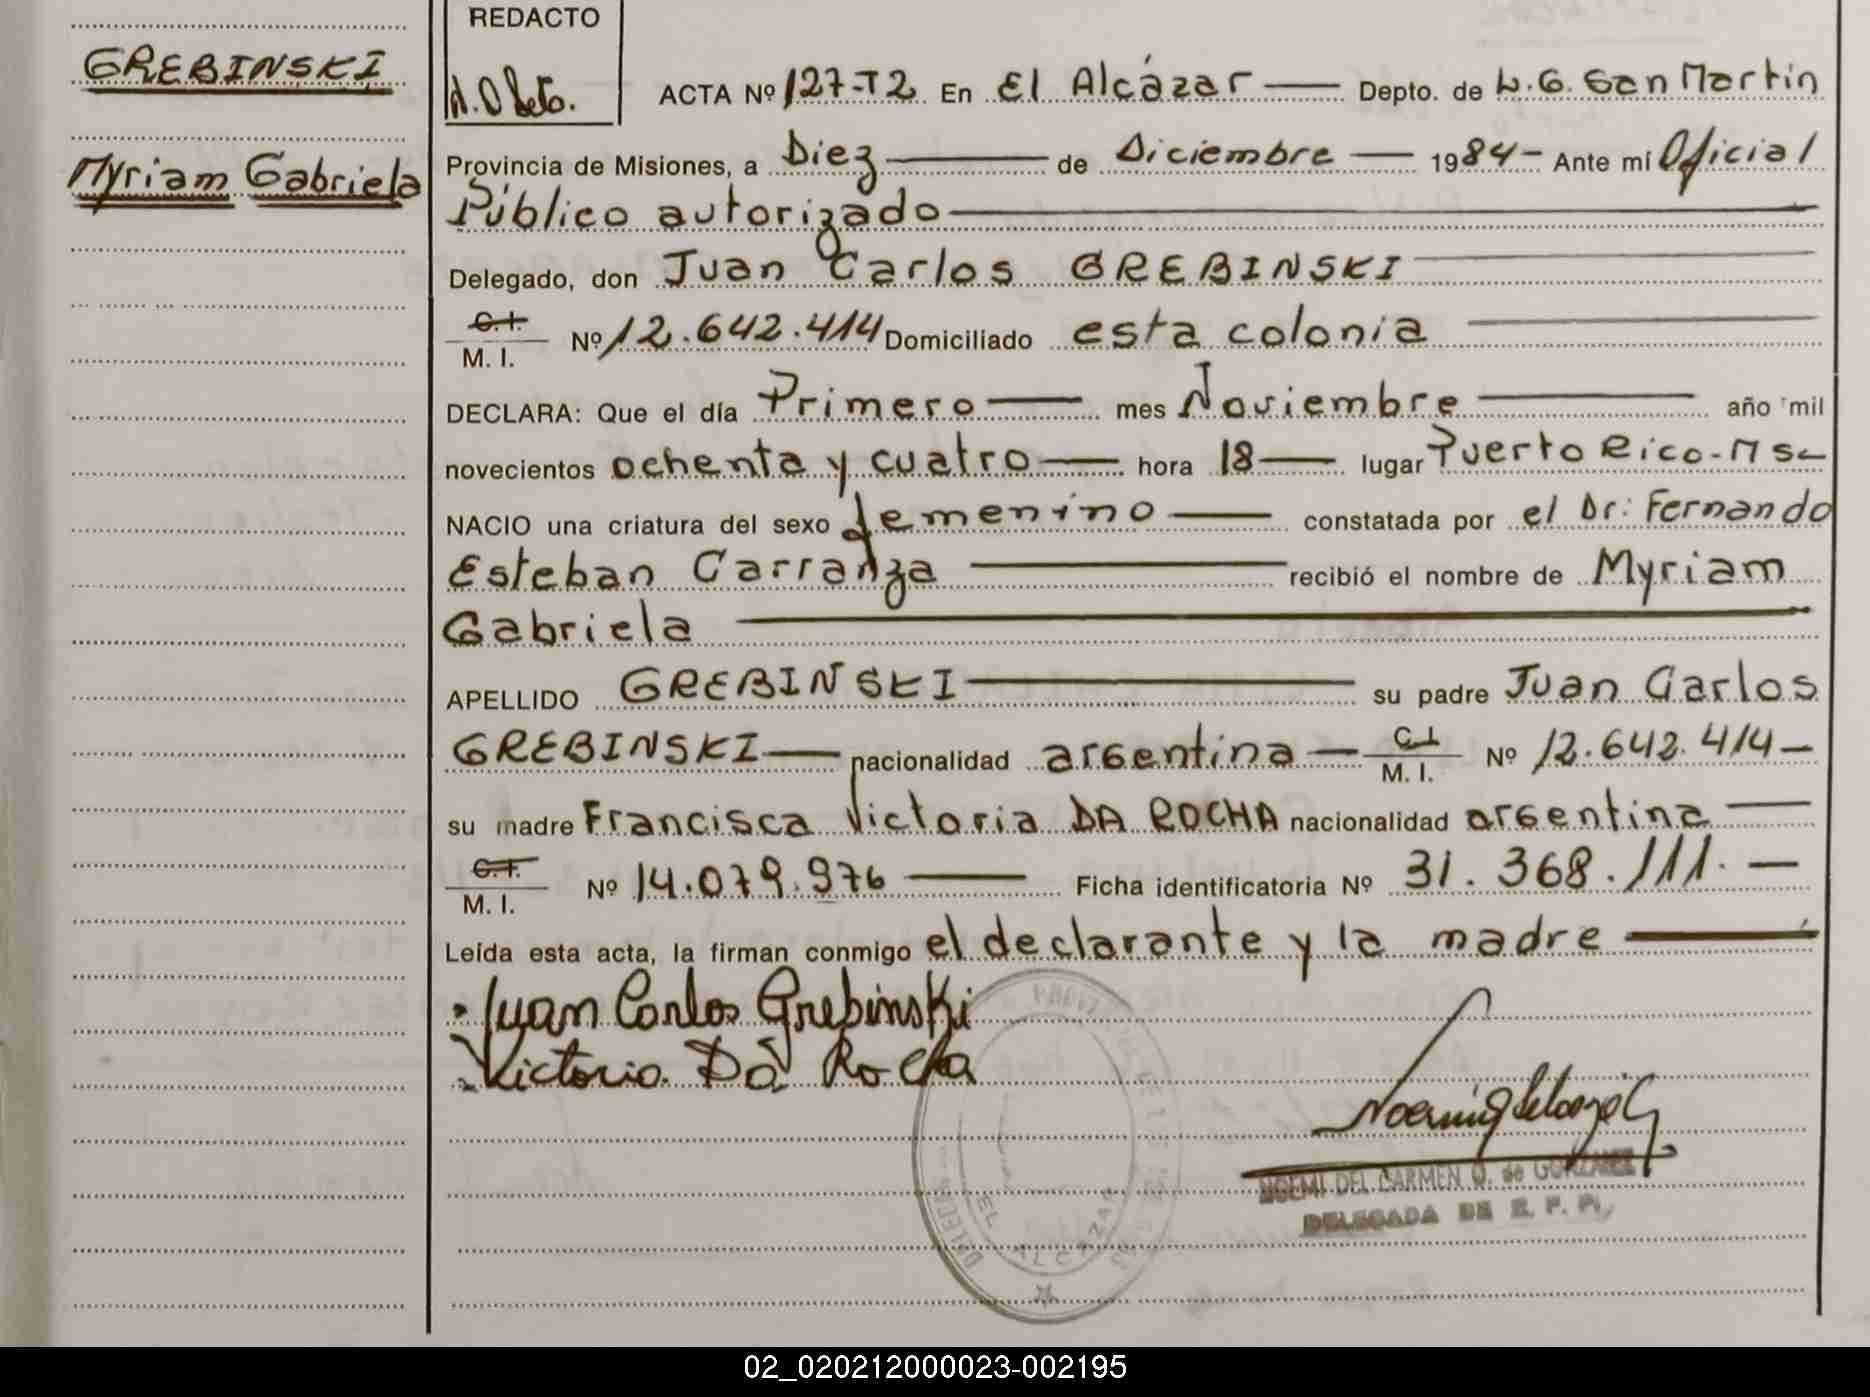 GREBINSKI
Myriam Gabriela
REDACTO
ACTA Nº 127-T2 En El Alcázar — Depto. de L.G. San Martin
Provincia de Misiones, a Diez — de Diciembre — 1984- Ante mí Oficial
Público autorizado —
Delegado, don Juan Carlos GREBINSKI —
C. I.
M. I. Nº 12.642.414 Domiciliado esta colonia —
DECLARA: Que el día Primero — mes Noviembre — año mil
novecientos ochenta y cuatro — hora 18 — lugar Puerto Rico-Ms-
NACIO una criatura del sexo femenino — constatada por el Dr: Fernando
Esteban Carranza — recibió el nombre de Myriam
Gabriela —
APELLIDO GREBINSKI — su padre Juan Carlos
GREBINSKI — nacionalidad argentina — C.I.
M. I. Nº 12.642.414 —
su madre Francisca Victoria DA ROCHA nacionalidad argentina —
C. I.
M. I. Nº 14.079.976 — Ficha identificatoria Nº 31.368.111. —
Leída esta acta, la firman conmigo el declarante y la madre —
Juan Carlos Grebinski
Victoria Da Rocha
EL ALCAZAR
NOEMI DEL CARMEN O. de GONZALEZ
DELEGADA DE
02_020212000023-002195